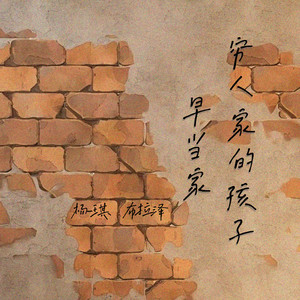 穷人家的孩子
早当家
杨琪 布拉泽